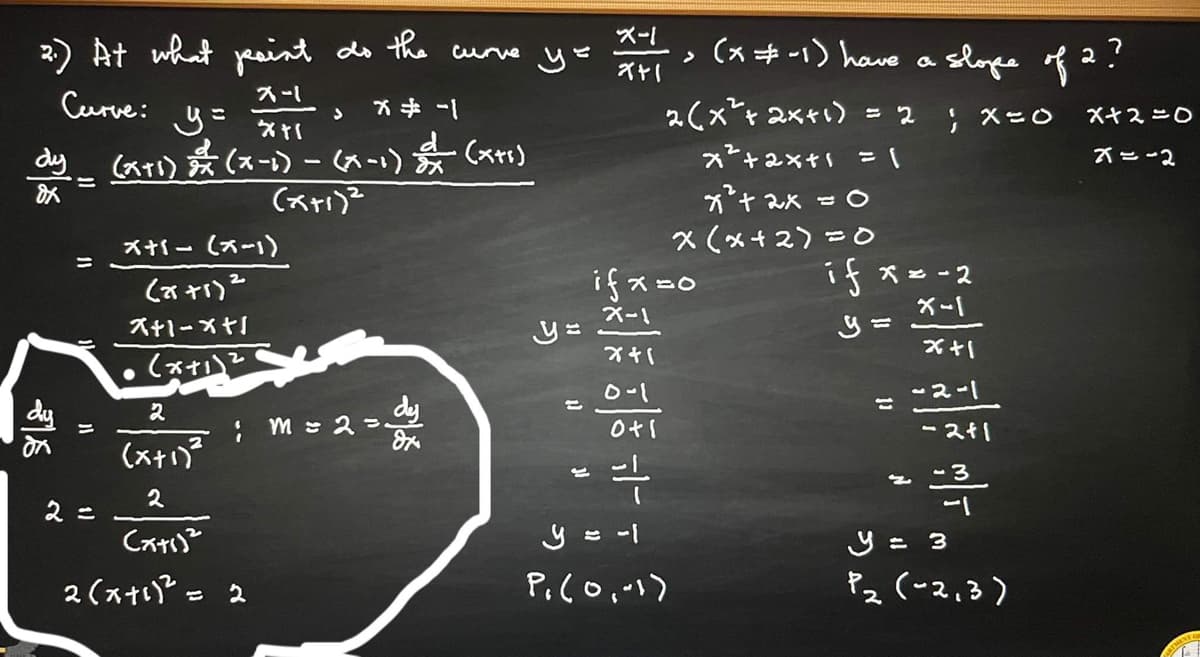 2.) At what point do the curve y = x-1/x+1 , (x ≠ -1) have a slope of 2?
Curve: y = x-1/x+1 , x ≠ -1
dy/dx = (x+1) d/dx (x-1) - (x-1) d/dx (x+1) / (x+1)²
= x+1 - (x-1) / (x+1)²
= x+1-x+1 / (x+1)²
dy/dx = 2/(x+1)² ; m = 2 = dy/dx
2 = 2/(x+1)²
2(x+1)² = 2
2(x²+2x+1) = 2 ; x=0 x+2=0
x²+2x+1 = 1 x=-2
x²+2x = 0
x(x+2) = 0
if x=0
y = x-1/x+1
= 0-1/0+1
= -1/1
y = -1
P₁(0,-1)
if x=-2
y = x-1/x+1
= -2-1/-2+1
= -3/-1
y = 3
P₂(-2,3)